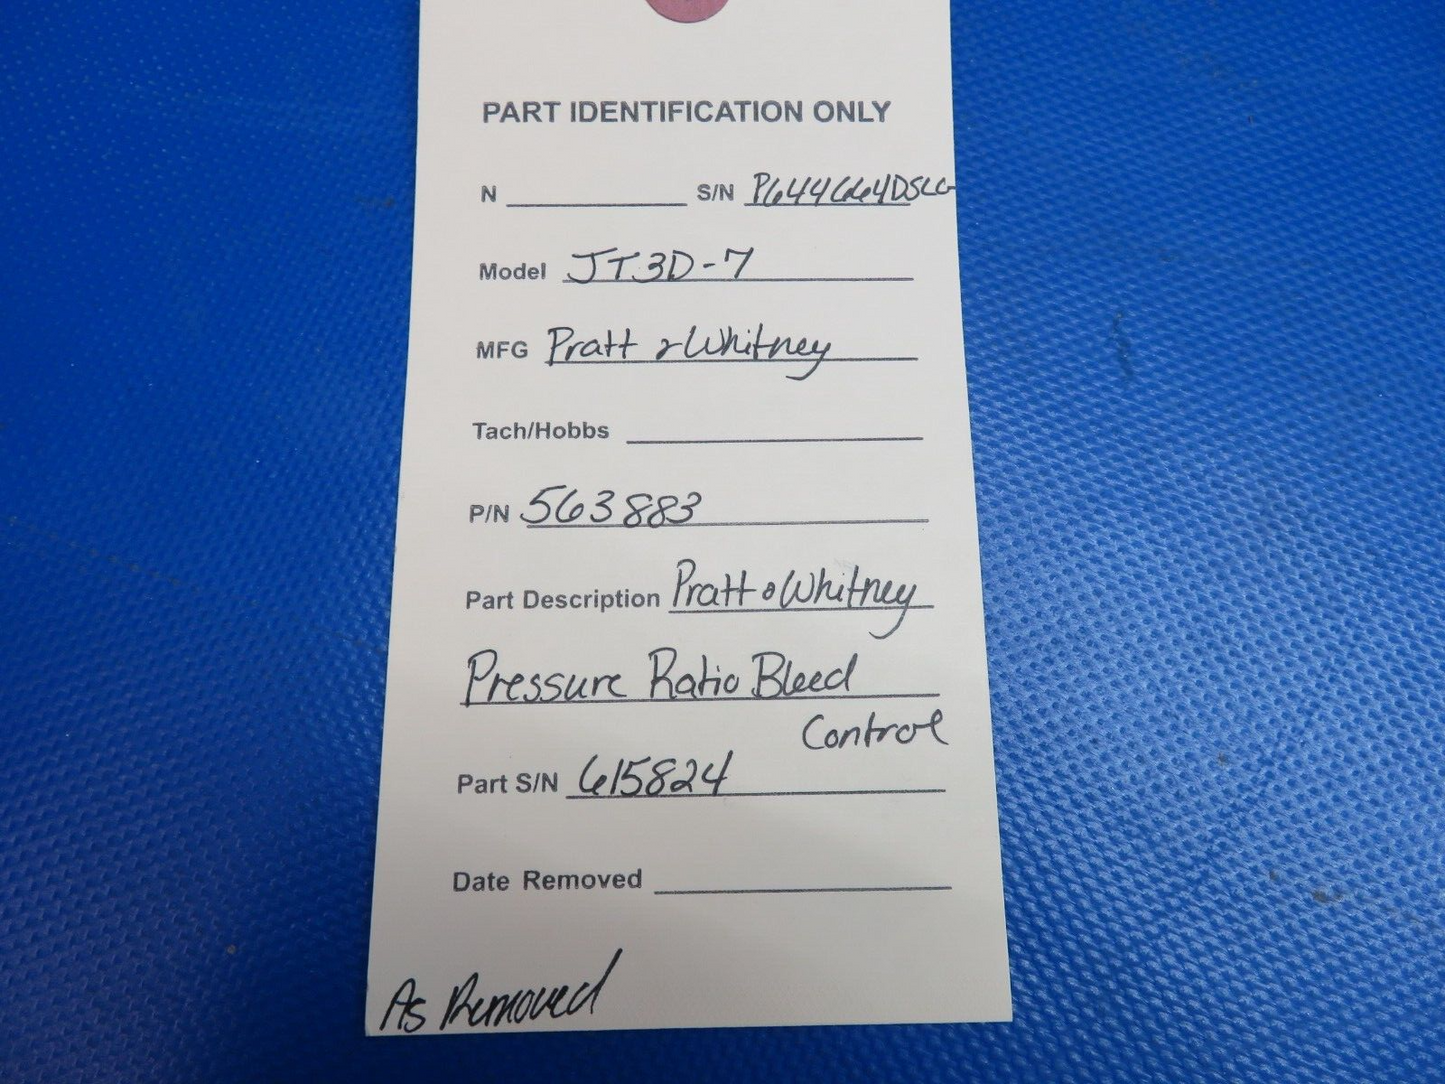 PART IDENTIFICATION ONLY
N S/N
Model JT3D-7
MFG Pratt & Whitney
Tach/Hobbs
P/N 563883
Part Description Pratt & Whitney
Pressure Ratio Bleed
Control
Part S/N 615824
Date Removed
As Removed